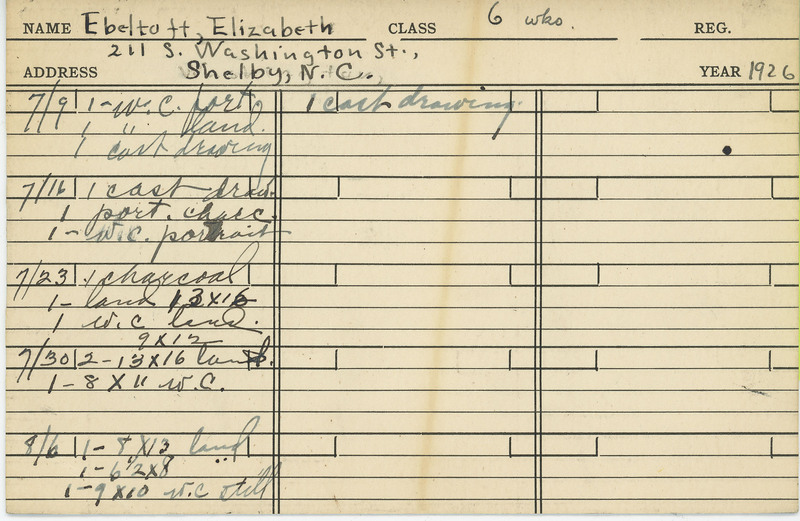 NAME Ebeltoft, Elizabeth CLASS 6 wks. REG.
211 S. Washington St.,
ADDRESS Shelby, N. C. YEAR 1926
7/9 1-W.C. port 1 cast drawing
1 " land.
1 cast drawing
7/16 1 cast draw.
1 port. charc.
1- W.C. portrait
7/23 1 charcoal
1- land 13x16
1 W.C land.
9x12
7/30 2-13x16 land.
1-8 X 11 W.C.
8/6 1-8 X13 land
1-6½x8 "
1-9x10 W.C still